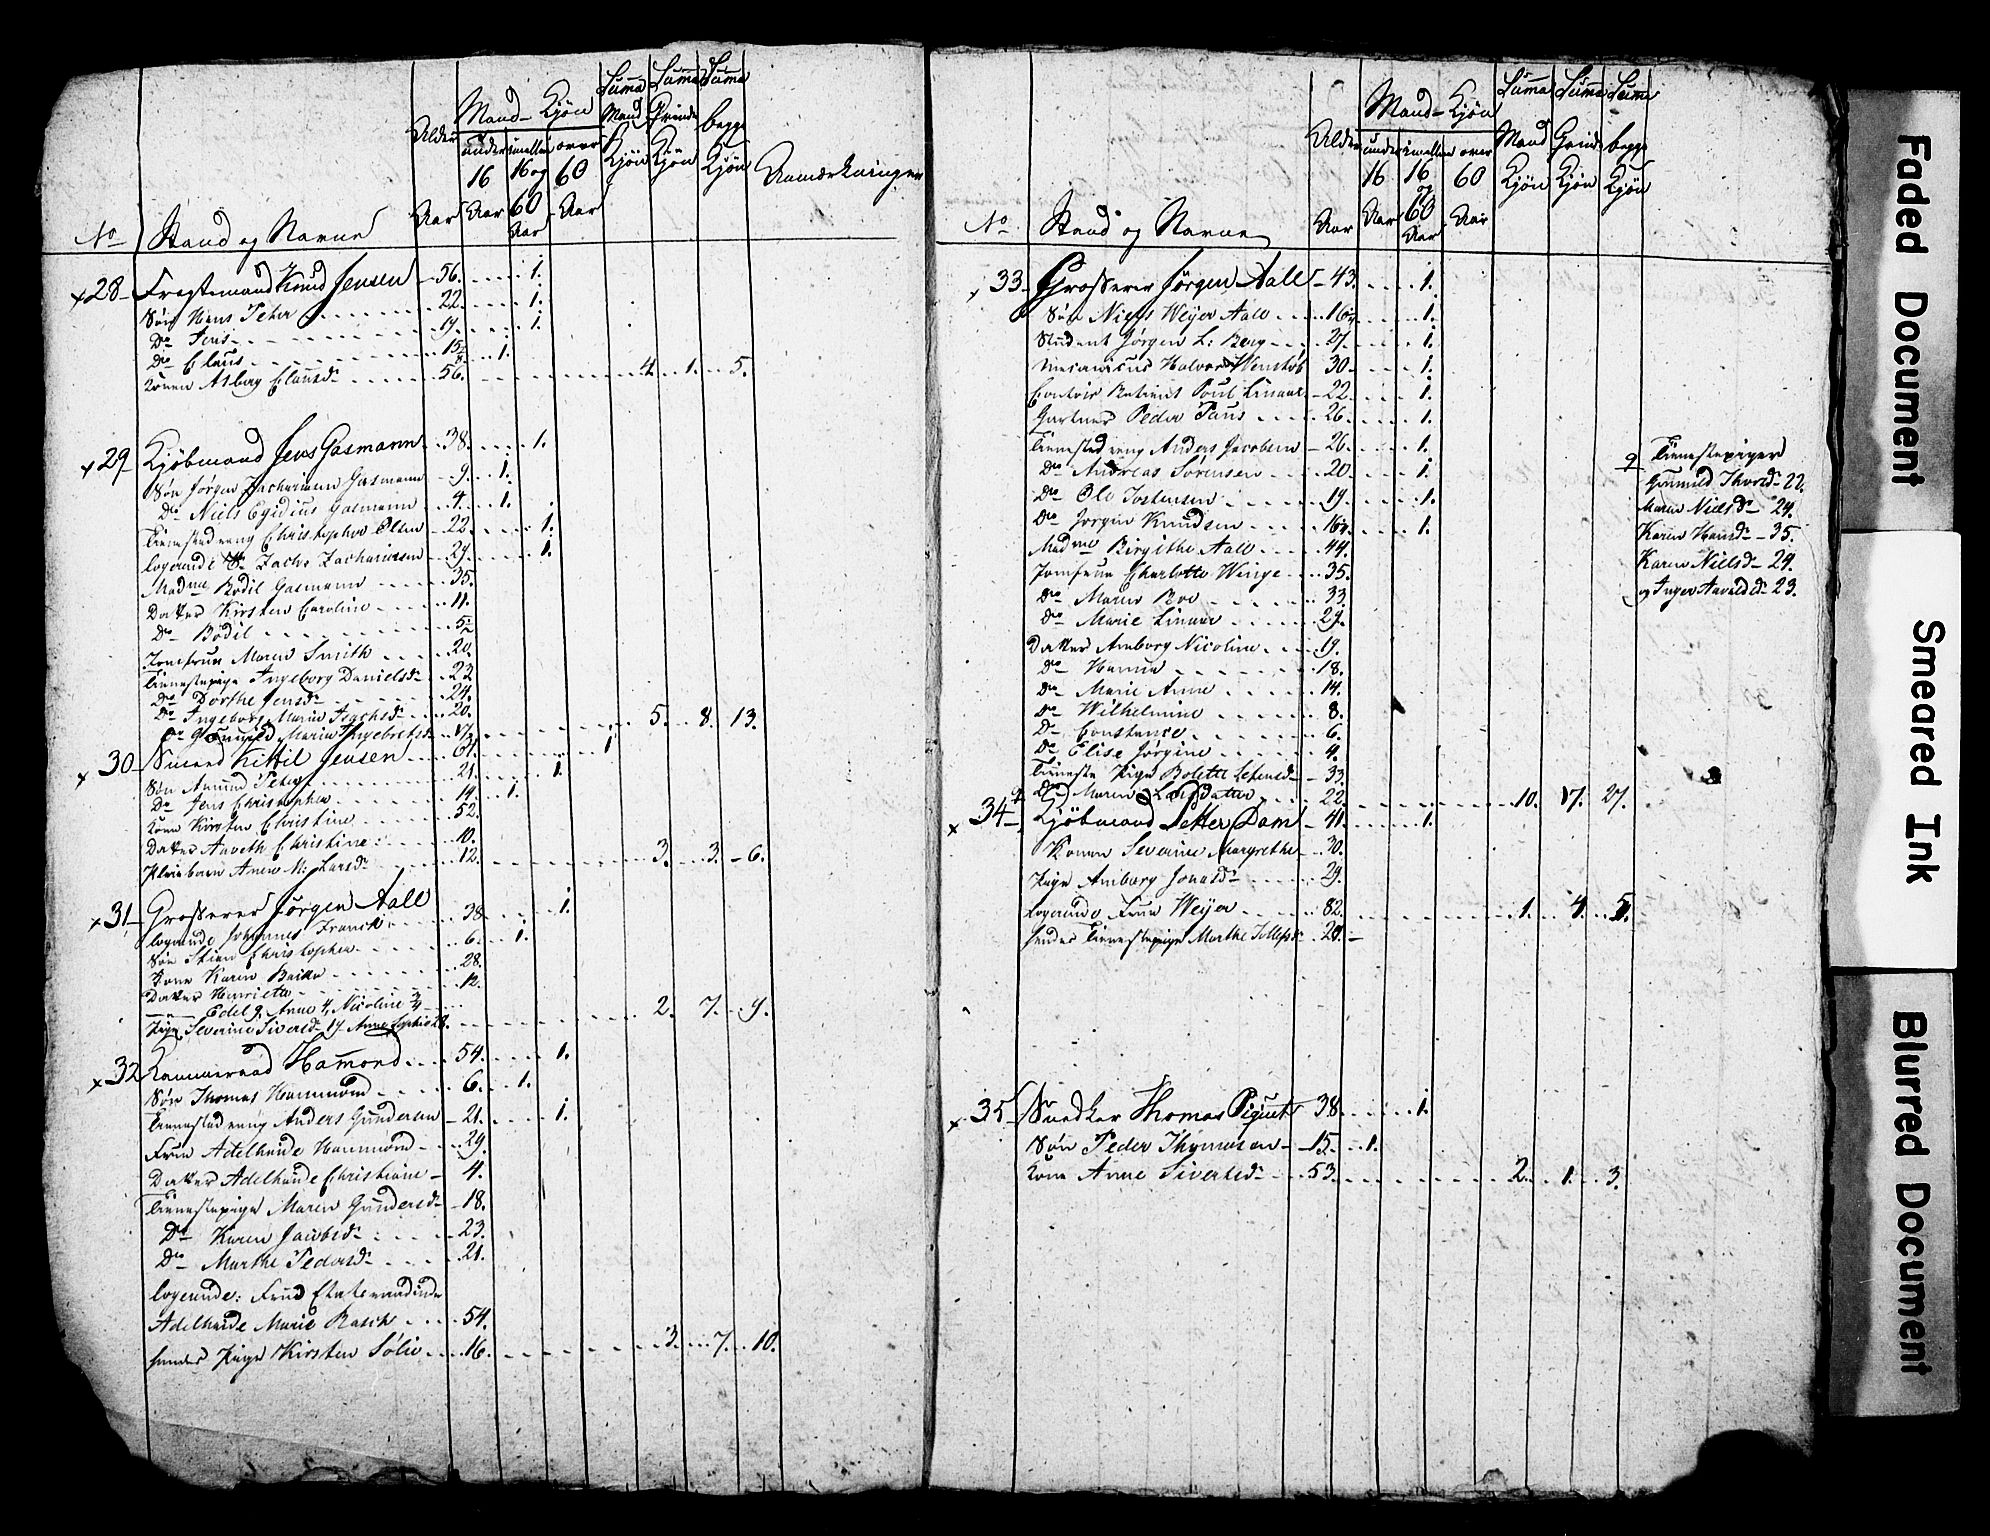 No Stand og Navne Alder Aar Mand-Kjøn under 16 Aar imellem 16 og 60 Aar over 60 Aar Suma Mand Kjøn Suma Qvinde Kjøn Suma begge Kjøn Anmærkninger
x 28 Knud Jensen 56. 1.
Søn Hans Peter 22. 1.
Do Jens 19. 1.
Do Claus 15 1.
Konen Asberg Clausd. 56. 4. 1. 5.
x 29 Kjøbmand Jens Gasmann 38. 1.
Søn Jørgen Zachariasen Gasmann 9. 1.
Do Niels Egidius Gasmann 4. 1.
Tienestedreng Christopher Olsen 22. 1.
Logerende Zachariasen 29. 1.
Madme Bodil Gasmann 35.
Datter Kirsten Caroline 11.
Do Bodil 5
Jomfrue Maren Smith 20.
Tienestepige Ingeborg Danielsd. 23
Do Dorthe Jensd. 24.
Do Ingeborg Maria 20.
Do Gunild Maria Ingebretsd. 17 5. 8. 13.
x 30 Smed Kittil Jensen 61. 1
Søn Amund Peter 21. 1.
Do Jens Christopher 14. 1.
Kone Kirsten Christine 52.
Datter Christine 10.
Pleiebarn Anne M: Larsd. 12. 3. 3. 6.
x 31 Grosserer Jørgen Aall
Logerende Johannes Franck 38 1.
Søn Stien Christopher 6. 1.
Kone Karen 28.
Datter Henriette 12.
Edel 9. Anne 4, Nicoline 3/4
Pige Severine Siversd. 19. Anne Sophie 28. 2. 7. 9.
x 32 Kammeraad Hamond 54. 1.
Søn Thomas Hammond 6. 1.
Tienestedreng Anders Gundersen 21. 1.
Frue Adelheide Hammond 29.
Datter Adelheide Christiane 4.
Tienestepige Maren Gundersd. 18.
Do Karen Jacobsd. 23.
Do Marthe Pedersd. 21.
Logerende: Frue Etatsraadinde
Adelheide Marie Rasch 54.
hendes Pige Kirsten Solie 16. 3. 7. 10.
No Stand og Navne Alder Aar Mand-Kjøn under 16 Aar imellem 16 og 60 Aar over 60 Aar Suma Mand Kjøn Suma Qvinde Kjøn Suma begge Kjøn
x 33 Grosserer Jørgen Aall 43. 1.
Søn Niels Weyer Aall 16 1.
Student Jørgen L: Berg 27. 1.
Mecanicus Halvor Wenstøb 30. 1.
Contoir Betient Poul Linaae 22. 1.
Gartner Peder Paus 26. 1.
Tienestedreng Anders Jacobsen 26. 1.
Do Andreas Sørensen 20. 1.
Do Ole Jostensen 19. 1.
Do Jørgen Knudsen 16 1.
Madme Birgithe Aall 44.
Jomfrue Charlotte Winge 35.
Do Maren Boe 33.
Do Marie Linaae 29.
Datter Amborg Nicoline 19.
Do Hanna 18.
Do Marie Anne 14.
Do Wilhelmine 8.
Do Constance 6.
Do Elise Jørgine 4.
Tieneste Pige Bolette 33.
Do Maren Larsdatter 22. 10. 17. 27.
Tienestepiger
Gunnild Thorsd. 22.
Maren Nielsd. 24.
Karen Hansd. 35.
Karen Nielsd. 24.
og Inger Aavoldsd. 23.
x 34 Kjøbmand Petter Dam 41. 1.
Konen Severine Margrethe 30.
Pige Amborg Jonasd. 29.
Logerende Frue Weyer 82. 1. 4. 5.
hendes Tienestepige Marthe 28.
x 35 Snedker Thomas Piquet 38. 1.
Søn Peder Thomasen 15. 1.
Kone Anne Sivertsd. 53. 2. 1. 3.
Faded Document
Smeared Ink
Blurred Document